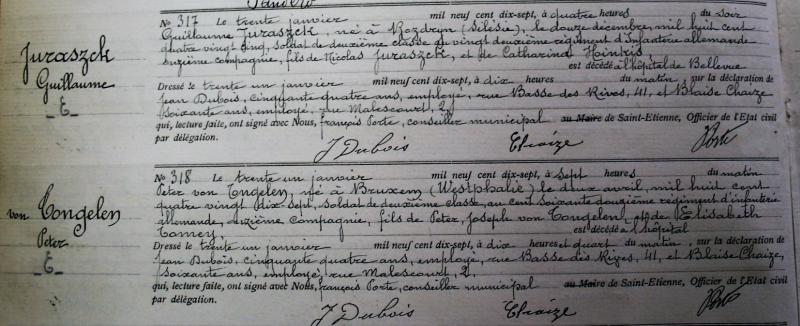 Sandero
No 317 Le trente janvier mil neuf cent dix-sept, à quatre heures du soir
Guillaume Juraszck, né à Rozdzyn (Silésie), le douze décembre, mil huit cent
quatre vingt cinq, soldat de deuxième classe au vingt deuxième régiment d'infanterie allemande
onzième compagnie, fils de Nicolas Juraszck, et de Catharina Heinkis
est décédé à l'hôpital de Bellevue
Juraszck
Guillaume
E
Dressé le trente un janvier mil neuf cent dix-sept, à dix heures du matin, sur la déclaration de
Jean Dubois, cinquante quatre ans, employé, rue Basse des Rives, 41, et Blaise Chaize
soixante ans, employé, rue Malescourt, 2,
qui, lecture faite, ont signé avec Nous, françois Porte, conseiller municipal au Maire de Saint-Etienne, Officier de l'Etat civil
par délégation.
J Dubois Chaize Porte
No 318 Le trente un janvier mil neuf cent dix-sept, à sept heures du matin
Peter von Tongelen, né à Bruxem (Westphalie) le deux avril, mil huit cent
quatre vingt dix-sept, soldat de deuxième classe, au cent soixante douzième régiment d'infanterie
allemande, onzième compagnie, fils de Peter, Joseph von Tongelen, et de Elisabeth
Comey, est décédé à l'hôpital
von Tongelen
Peter
E
Dressé le trente un janvier mil neuf cent dix-sept, à dix heures et quart du matin, sur la déclaration de
Jean Dubois, cinquante quatre ans, employé, rue Basse des Rives, 41, et Blaise Chaize,
soixante ans, employé, rue Malescourt, 2,
qui, lecture faite, ont signé avec Nous, françois Porte, conseiller municipal au Maire de Saint-Etienne, Officier de l'Etat civil
par délégation.
J Dubois Chaize Porte